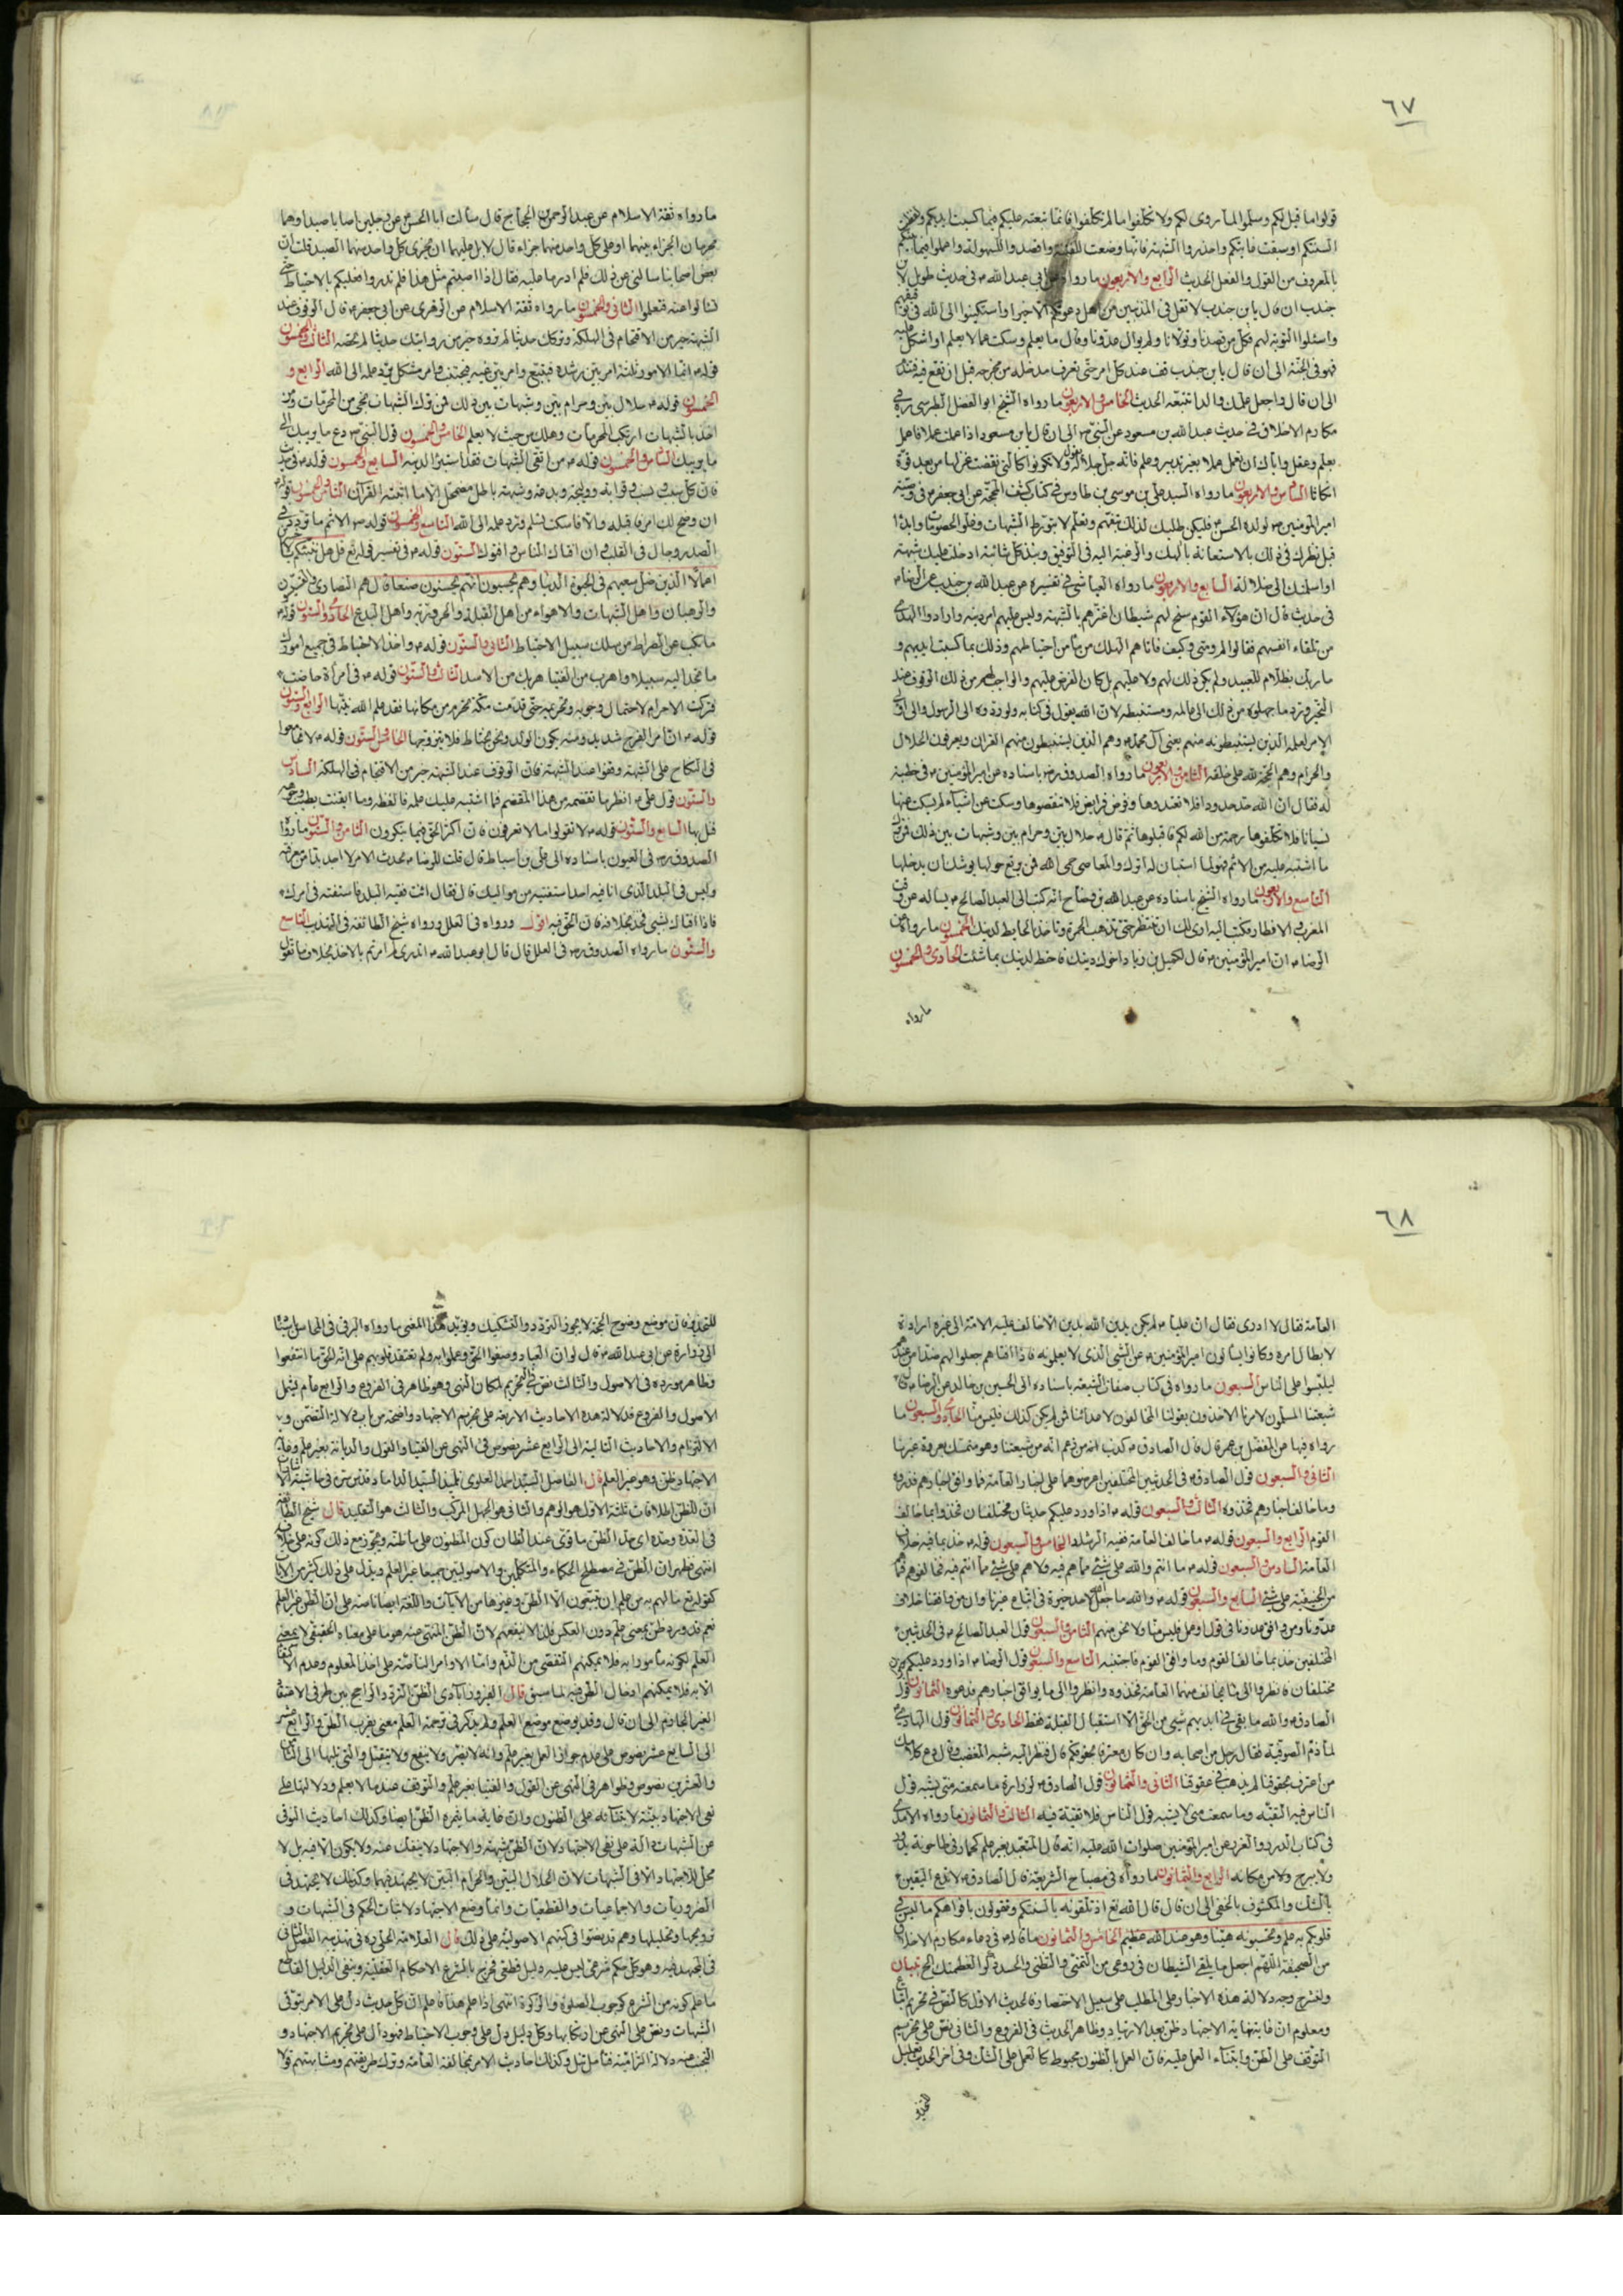 ٦٧
قولوا ما قيل لكم وسلموا لما روى لكم ولا تكلفوا ما لم تكلفوا فانما تبعته عليكم فيما كسبت ايديكم ولفظت
السنتكم او سبقت غايتكم واحذروا الشبهة فانها وضعت للفتنة واقصدوا السهولة واعملوا فيما بينكم
بالمعروف من القول والفعل الحديث الرابع والاربعون ما رواه عن ابي عبد الله في حديث طويل لابن
جندب ان قال يا بن جندب لا تقل في المذنبين من اهل دعوتكم الا خيرا واستكينوا الى الله في توفيقهم
واسئلوا التوبة لهم فكل من قصدنا وتولانا ولم يوال عدونا وقال ما يعلم وسكت عما لا يعلم او اشكل عليه
فهو في الجنة الى ان قال يا بن جندب قف عند كل امر حتى تعرف مدخله من مخرجه قبل ان تقع فيه فتندم
الى ان قال واجعل علمك والدا تتبعه الحديث الخامس والاربعون ما رواه الشيخ ابو الفضل الطبرسي ره في
مكارم الاخلاق في حديث عبد الله بن مسعود عن النبي ص الى ان قال يا بن مسعود اذا عملت عملا فاعمل
بعلم وعقل واياك ان تعمل عملا بغير تدبير وعلم فانه جل جلاله يقول ولا تكونوا كالتي نقضت غزلها من بعد قوة
انكاثا السادس والاربعون ما رواه السيد علي بن موسى بن طاوس في كتاب كشف المحجة عن ابي جعفر في وصية
امير المؤمنين لولده الحسن فليكن طلبك لذلك بتفهم وتعلم لا بتورط الشبهات وعلو الخصومات وابدأ
قبل نظرك في ذلك بالاستعانة بالهك والرغبة اليه في التوفيق ونبذ كل شائبة ادخلت عليك شبهة
او اسلمتك الى ضلالة السابع والاربعون ما رواه العياشي في تفسيره عن عبد الله بن جندب عن الرضا
في حديث قال ان هؤلاء القوم سنح لهم شيطان اغترهم بالشبهة ولبس عليهم امر دينه وارادوا الهدى
من تلقاء انفسهم فقالوا لم ومتى وكيف فاتاهم الهلك من مأمن احتياطهم وذلك بما كسبت ايديهم و
ما ربك بظلام للعبيد ولم يكن ذلك لهم ولا عليهم بل كان الفرض عليهم والواجب لهم من ذلك الوقوف عند
التحير ورد ما جهلوه من ذلك الى عالمه ومستنبطه لان الله يقول في كتابه ولو ردوه الى الرسول والى اولي
الامر لعلمه الذين يستنبطونه منهم يعني آل محمد وهم الذين يستنبطون منهم القران ويعرفون الحلال
والحرام وهم الحجة لله على خلقه الثامن والاربعون ما رواه الصدوق ره باسناده عن امير المؤمنين في خطبة
له فقال ان الله حد حدودا فلا تعتدوها وفرض فرايض فلا تنقصوها وسكت عن اشياء لم يسكت عنها
نسيانا فلا تكلفوها رحمة من الله لكم فاقبلوها ثم قال حلال بين وحرام بين وشبهات بين ذلك فمن ترك
ما اشتبه عليه من الاثم فهو لما استبان له اترك والمعاصي حمى الله فمن يرتع حولها يوشك ان يدخلها
التاسع والاربعون ما رواه الشيخ باسناده عن عبد الله بن وضاح انه كتب الى العبد الصالح يساله عن وقت
المغرب والافطار فكتب اليه ارى لك ان تنتظر حتى تذهب الحمرة وتاخذ بالحايط لدينك الخمسون ما رواه عن
الرضا ان امير المؤمنين قال لكميل بن زياد اخوك دينك فاحتط لدينك بما شئت الحادي والخمسون
ما رواه
ما رواه ثقة الاسلام عن عبد الرحمن بن الحجاج قال سألت ابا الحسن عن رجلين اصابا صيدا وهما
محرمان الجزاء بينهما او على كل واحد منهما جزاء قال لا بل عليهما ان يجزى كل واحد منهما الصيد قلت ان
بعض اصحابنا سالني عن ذلك فلم ادر ما عليه فقال اذا اصبتم مثل هذا فلم تدروا فعليكم بالاحتياط حتى
تسالوا عنه فتعلموا الثاني والخمسون ما رواه ثقة الاسلام عن الزهري عن ابي جعفر قال الوقوف عند
الشبهة خير من الاقتحام في الهلكة وتركك حديثا لم تروه خير من روايتك حديثا لم تحصه الثالث والخمسون
قوله انما الامور ثلثة امر بين رشده فيتبع وامر بين غيه فيجتنب وامر مشكل يرد علمه الى الله الرابع و
الخمسون قوله حلال بين وحرام بين وشبهات بين ذلك فمن ترك الشبهات نجى من المحرمات ومن
اخذ بالشبهات ارتكب المحرمات وهلك من حيث لا يعلم الخامس والخمسون قول النبي ص دع ما يريبك الى
ما يريبك السادس والخمسون قوله من اتقى الشبهات فقد استبرأ لدينه السابع والخمسون قوله في حديث
فان كل سبب ونسب وقرابة ووليجة وبدعة وشبهة باطل مضمحل الا ما اثبته القرآن الثامن والخمسون قوله
ان وضح لك امر فاقبله والا فاسكت تسلم ورد علمه الى الله التاسع والخمسون قوله الاثم ما تردد في
الصدر وجال في القلب وان افتاك الناس وافتوك الستون قوله في تفسير قوله تع قل هل ننبئكم بالاخسرين
اعمالا الذين ضل سعيهم في الحيوة الدنيا وهم يحسبون انهم يحسنون صنعا قال هم النصارى والقسيسون
والرهبان واهل الشبهات والاهواء من اهل القبلة والحرورية واهل البدع الحادي والستون قوله
ما نكب عن الصراط من سلك سبيل الاحتياط الثاني والستون قوله وخذ الاحتياط في جميع امورك
ما تجد اليه سبيلا واهرب من الفتيا هربك من الاسد الثالث والستون قوله في امرأة حاضت
فتركت الاحرام لاحتمال وجوبه وتحريمه حتى قدمت مكة تحرم من مكانها فقد علم الله نيتها الرابع والستون
قوله ان امر الفرج شديد ومنه يكون الولد ونحن نحتاط فلا يتزوجها الخامس والستون قوله لا تجامعوا
في النكاح على الشبهة وقفوا عند الشبهة فان الوقوف عند الشبهة خير من الاقتحام في الهلكة السادس
والستون قول علي انظر ما تقضمه من هذا المقضم فما اشتبه عليك علمه فالفظه وما ايقنت بطيب وجهه
فنل بها السابع والستون قوله لا تقولوا ما لا تعرفون فان اكثر الحق فيما تنكرون الثامن والستون ما رواه
الصدوق ره في العيون باسناده الى علي بن اسباط قال قلت للرضا يحدث الامر لا اجد بدا من معرفته
وليس في البلد الذي انا فيه احد استفتيه من مواليك قال فقال ائت فقيه البلد فاستفته في امرك
فاذا افتاك بشيء فخذ بخلافه فان الحق فيه اقول ورواه في العلل ورواه شيخ الطائفة في التهذيب التاسع
والستون ما رواه الصدوق ره في العلل قال قال ابو عبد الله اتدري لم امرتم بالاخذ بخلاف ما تقول
٦٨
العامة فقال لا ادرى فقال ان عليا لم يكن يدين الله بدين الا خالف عليه الامة الى غيره ارادة
لابطال امره وكانوا يسالون امير المؤمنين عن الشيء الذي لا يعلمونه فاذا افتاهم جعلوا لهم ضدا من عندهم
ليلبسوا على الناس السبعون ما رواه في كتاب صفات الشيعة باسناده الى الحسين بن خالد عن الرضا قال
شيعتنا المسلمون لامرنا الاخذون بقولنا المخالفون لاعدائنا فمن لم يكن كذلك فليس منا الحادي والسبعون ما
رواه فيها عن المفضل بن عمر قال قال الصادق كذب من زعم انه من شيعتنا وهو متمسك بعروة غيرنا
الثاني والسبعون قول الصادق في الحديثين المختلفين اعرضوهما على اخبار العامة فما وافق اخبارهم فذروه
وما خالف اخبارهم فخذوه الثالث والسبعون قوله اذا ورد عليكم حديثان مختلفان فخذوا بما خالف
القوم الرابع والسبعون قوله ما خالف العامة ففيه الرشاد الخامس والسبعون قوله خذ بما فيه خلاف
العامة السادس والسبعون قوله ما انتم والله على شيء مما هم فيه ولا هم على شيء مما انتم فيه فخالفوهم فما هم
من الحنيفية على شيء السابع والسبعون قوله والله ما جعل الله لاحد خيرة في اتباع غيرنا وان من وافقنا خالف
عدونا ومن وافق عدونا في قول او عمل فليس منا ولا نحن منهم الثامن والسبعون قول العبد الصالح في الحديثين
المختلفين خذ بما خالف القوم وما وافق القوم فاجتنبه التاسع والسبعون قول الرضا اذا ورد عليكم خبران
مختلفان فانظروا الى ما يخالف منهما العامة فخذوه وانظروا الى ما يوافق اخبارهم فدعوه الثمانون قول
الصادق والله ما بقي في ايديهم شيء من الحق الا استقبال القبلة فقط الحادي والثمانون قول الهادي
لما ذم الصوفية فقال رجل من اصحابه وان كان معترفا بحقوقكم قال فنظر اليه شبه المغضب وقال دع ذا عنك
من اعترف بحقوقنا لم يذهب في عقوقنا الثاني والثمانون قول الصادق لزرارة ما سمعته مني يشبه قول
الناس فيه التقية وما سمعت مني لا يشبه قول الناس فلا تقية فيه الثالث والثمانون ما رواه الامدي
في كتاب الدرر والغرر عن امير المؤمنين صلوات الله عليه انه قال المتعبد بغير علم كحمار في طاحونة يدور
ولا يبرح ولا من مكانه الرابع والثمانون ما رواه في مصباح الشريعة قال الصادق لا تدع اليقين
بالشك والمكشوف بالخفي الى ان قال قال الله تع اذ تلقونه بالسنتكم وتقولون بافواهكم ما ليس في
قلوبكم به علم وتحسبونه هينا وهو عند الله عظيم الخامس والثمانون ما قاله في دعاء مكارم الاخلاق
من الصحيفة اللهم اجعل ما يلقي الشيطان في روعي من التمني والتظني والحسد ذكرا لعظمتك الخ تبيان
ولنشرح وجه دلالة هذه الاخبار على المطلب على سبيل الاختصار فالحديث الاول كالنص في تحريم اتباع
ومعلوم ان غاية نهاية الاجتهاد ظن بعد الارتياد وظاهر الحديث في الفروع والثاني نص على تحريم
التوقف على الظن وابتناء العمل عليه فان العمل بالظنون محبوط كالعمل على الشك وفي اخر الحديث تعليل
للتحذير
للتحذير فان موضع وضوح الحجة لا يجوز التردد والتشكيك ويؤيد هذا المعنى ما رواه البرقي في المحاسن باسناده
الى زرارة عن ابي عبد الله قال لو ان العباد وصفوا الحق وعملوا به ولم تعتقد قلوبهم على انه الحق ما انتفعوا
وظاهر مورده في الاصول والثالث نص في التحريم لمكان النهي وهو ظاهر في الفروع والرابع عام يشمل
الاصول والفروع فدلالة هذه الاحاديث الاربعة على تحريم الاجتهاد واضحة من باب دلالة التضمن و
الالتزام والاحاديث التالية الى الرابع عشر نصوص في النهي عن الفتيا والقول والديانة بغير علم وغاية
الاجتهاد ظن وهو غير العلم قال الفاضل السيد احمد العلوي تلميذ السيد الداماد قدس سره في حاشية
ان للظن اطلاقات ثلثة الاول هو الوهم والثاني هو الجهل المركب والثالث هو التقليد قال شيخ الطائفة
في العدة وحده اى حد الظن ما قوى عند الظان كون المظنون على ما ظنه ويجوز مع ذلك كونه على خلافه
انتهى فظهر ان الظن في مصطلح الحكماء والمتكلمين والاصوليين جميعا غير العلم ويدل على ذلك كثير من الايات
كقوله تع ما لهم به من علم ان يتبعون الا الظن وغيرها من الايات واللغة ايضا ناصة على ان الظن غير العلم
نعم قد ورد ظن بمعنى علم دون العكس فلذا لا ينفعهم لان الظن المنهي عنه هو ما على معناه الحقيقي لا بمعنى
العلم لكونه مامورا به فلا يمكنهم التفصي من الذم واما الاوامر الناصة على اخذ المعلوم وعدم الاكتفاء
الا به فلا يمكنهم ادخال الظن فيه لما سبق قال الفيروزآبادى الظن التردد الراجح بين طرفي الاعتقاد
الغير الجازم الى ان قال وقد يوضع موضع العلم ولم يذكر في ترجمة العلم معنى يقرب الظن والرابع عشر
الى السابع عشر نصوص على عدم جواز العمل بغير علم وانه لا يضر ولا ينفع ولا يتقبل والتي تليها الى الثامن
والعشرين نصوص وظواهر في النهي عن القول والفتيا بغير علم والتوقف عند ما لا يعلم ودلالتها على
نفي الاجتهاد بينة لابتنائه على الظنون وان غاية ما يثمره الظن ايضا وكذلك احاديث التوقي
عن الشبهات دالة على نفي الاجتهاد لان الظن شبهة والاجتهاد لا ينفك عنه ولا يكون الا فيه بل لا
محل للاجتهاد الا في الشبهات لان الحلال البين والحرام البين لا يجتهد فيهما وكذلك لا يجتهد في
الضروريات والاجماعيات والقطعيات وانما وضع الاجتهاد لاثبات الحكم في الشبهات و
ترجيحها وتحليلها وهم قد نصوا في كتبهم الاصولية على ذلك قال العلامة الحلي ره في تهذيبه الفصل الثاني
في المجتهد فيه وهو كل حكم شرعي ليس عليه دليل قطعي فخرج بالشرع الاحكام العقلية وبنفي الدليل القاطع
ما علم كونه من الشرع كوجوب الصلوة والزكوة انتهى اذا علم هذا فاعلم ان كل حديث دل على الامر بتوقي
الشبهات ونص على النهي عن ارتكابها وكل دليل دل على وجوب الاحتياط فهو دال على تحريم الاجتهاد و
التجنب عنه دلالة التزامية فتامل تنل وكذلك احاديث الامر بمخالفة العامة وترك طريقتهم ومشابهتهم قولا